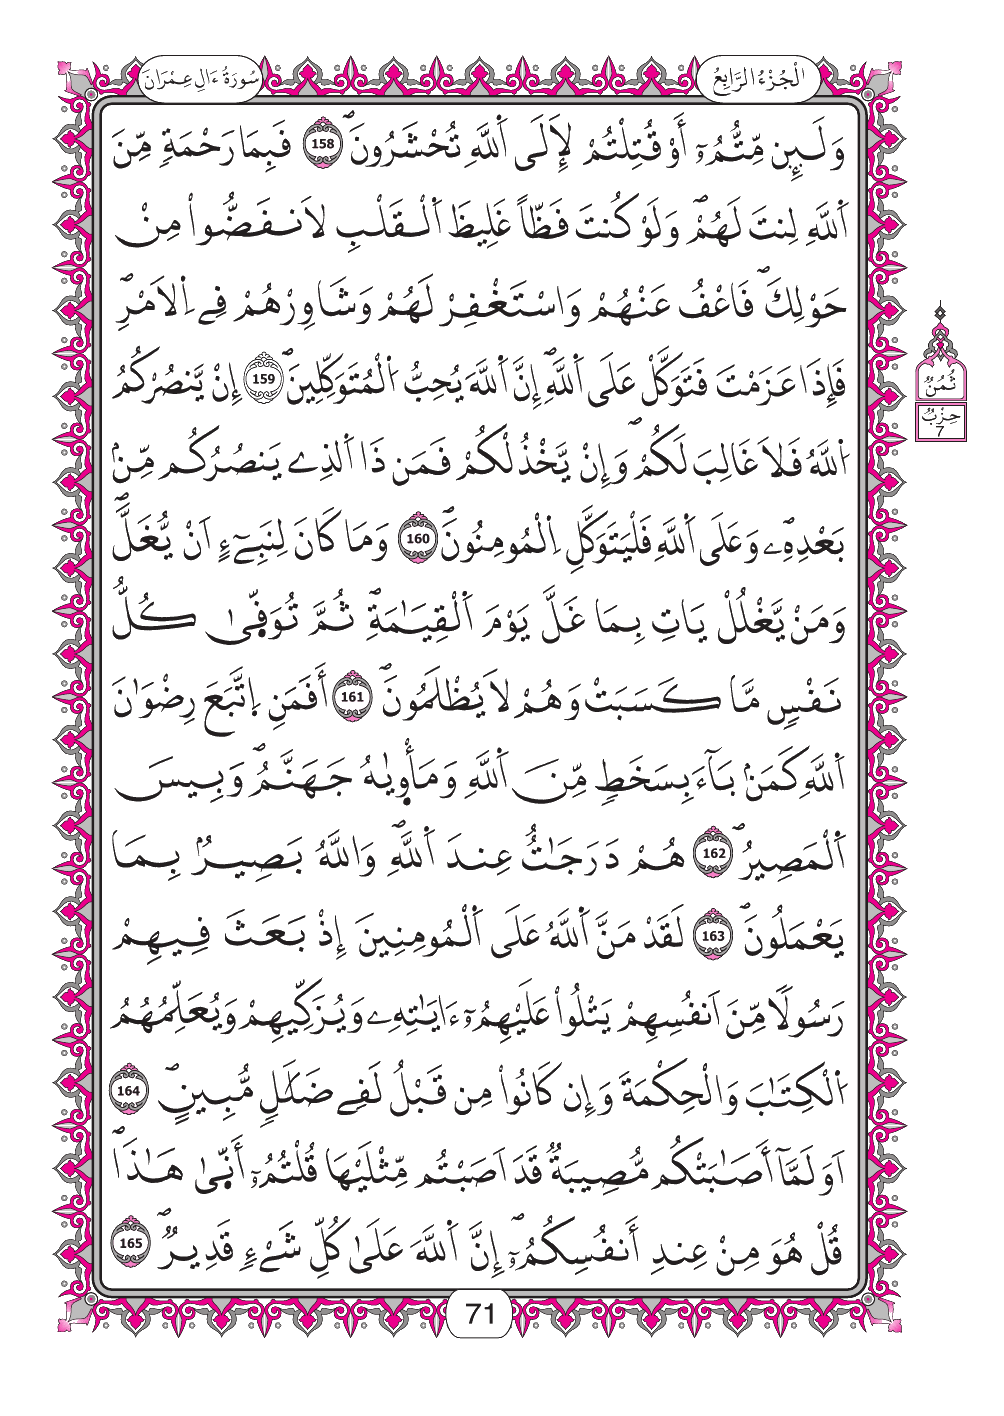 سُورَةُ ءَالِ عِمْرَانَ
الْجُزْءُ الرَّابِعُ
وَلَئِن مِّتُّمُۥٓ أَوْ قُتِلْتُمْ لَإِلَى اَ۬للَّهِ تُحْشَرُونَۖ 158 فَبِمَا رَحْمَةٖ مِّنَ
اَ۬للَّهِ لِنتَ لَهُمْۖ وَلَوْ كُنتَ فَظّاً غَلِيظَ اَ۬لْقَلْبِ لَانفَضُّواْ مِنْ
حَوْلِكَۖ فَاعْفُ عَنْهُمْ وَاسْتَغْفِرْ لَهُمْ وَشَاوِرْهُمْ فِے اِ۬لَامْرِۖ
فَإِذَا عَزَمْتَ فَتَوَكَّلْ عَلَى اَ۬للَّهِۖ إِنَّ اَ۬للَّهَ يُحِبُّ اُ۬لْمُتَوَكِّلِينَۖ 159 إِنْ يَّنصُرْكُمُ
ثُمُنُ
اُ۬للَّهُ فَلَا غَالِبَ لَكُمْۖ وَإِنْ يَّخْذُلْكُمْ فَمَن ذَا اَ۬لذِے يَنصُرُكُم مِّنۢ
حِزْبُ
7
بَعْدِهِۦۖ وَعَلَى اَ۬للَّهِ فَلْيَتَوَكَّلِ اِ۬لْمُومِنُونَۖ 160 وَمَا كَانَ لِنَبِےٓءٍ اَنْ يُّغَلَّۖ
وَمَنْ يَّغْلُلْ يَاتِ بِمَا غَلَّ يَوْمَ اَ۬لْقِيَٰمَةِۖ ثُمَّ تُوَفّ۪يٰ كُلُّ
نَفْسٖ مَّا كَسَبَتْ وَهُمْ لَا يُظْلَمُونَۖ 161 أَفَمَنِ اِ۪تَّبَعَ رِضْوَٰنَ
اَ۬للَّهِ كَمَنۢ بَآءَ بِسَخَطٖ مِّنَ اَ۬للَّهِ وَمَأْو۪يٰهُ جَهَنَّمُۖ وَبِيسَ
اَ۬لْمَصِيرُۖ 162 هُمْ دَرَجَٰتٌ عِندَ اَ۬للَّهِۖ وَاللَّهُ بَصِيرُۢ بِمَا
يَعْمَلُونَۖ 163 لَقَدْ مَنَّ اَ۬للَّهُ عَلَى اَ۬لْمُومِنِينَ إِذْ بَعَثَ فِيهِمْ
رَسُولاٗ مِّنَ اَنفُسِهِمْ يَتْلُواْ عَلَيْهِمُۥٓ ءَايَٰتِهِۦ وَيُزَكِّيهِمْ وَيُعَلِّمُهُمُ
اُ۬لْكِتَٰبَ وَالْحِكْمَةَ وَإِن كَانُواْ مِن قَبْلُ لَفِے ضَلَٰلٖ مُّبِينٍۖ 164
اَوَلَمَّآ أَصَٰبَتْكُم مُّصِيبَةٞ قَدَ اَصَبْتُم مِّثْلَيْهَا قُلْتُمُۥٓ أَنّ۪يٰ هَٰذَاۖ
قُلْ هُوَ مِنْ عِندِ أَنفُسِكُمُۥٓۖ إِنَّ اَ۬للَّهَ عَلَىٰ كُلِّ شَےْءٖ قَدِيرٞۖ 165
71